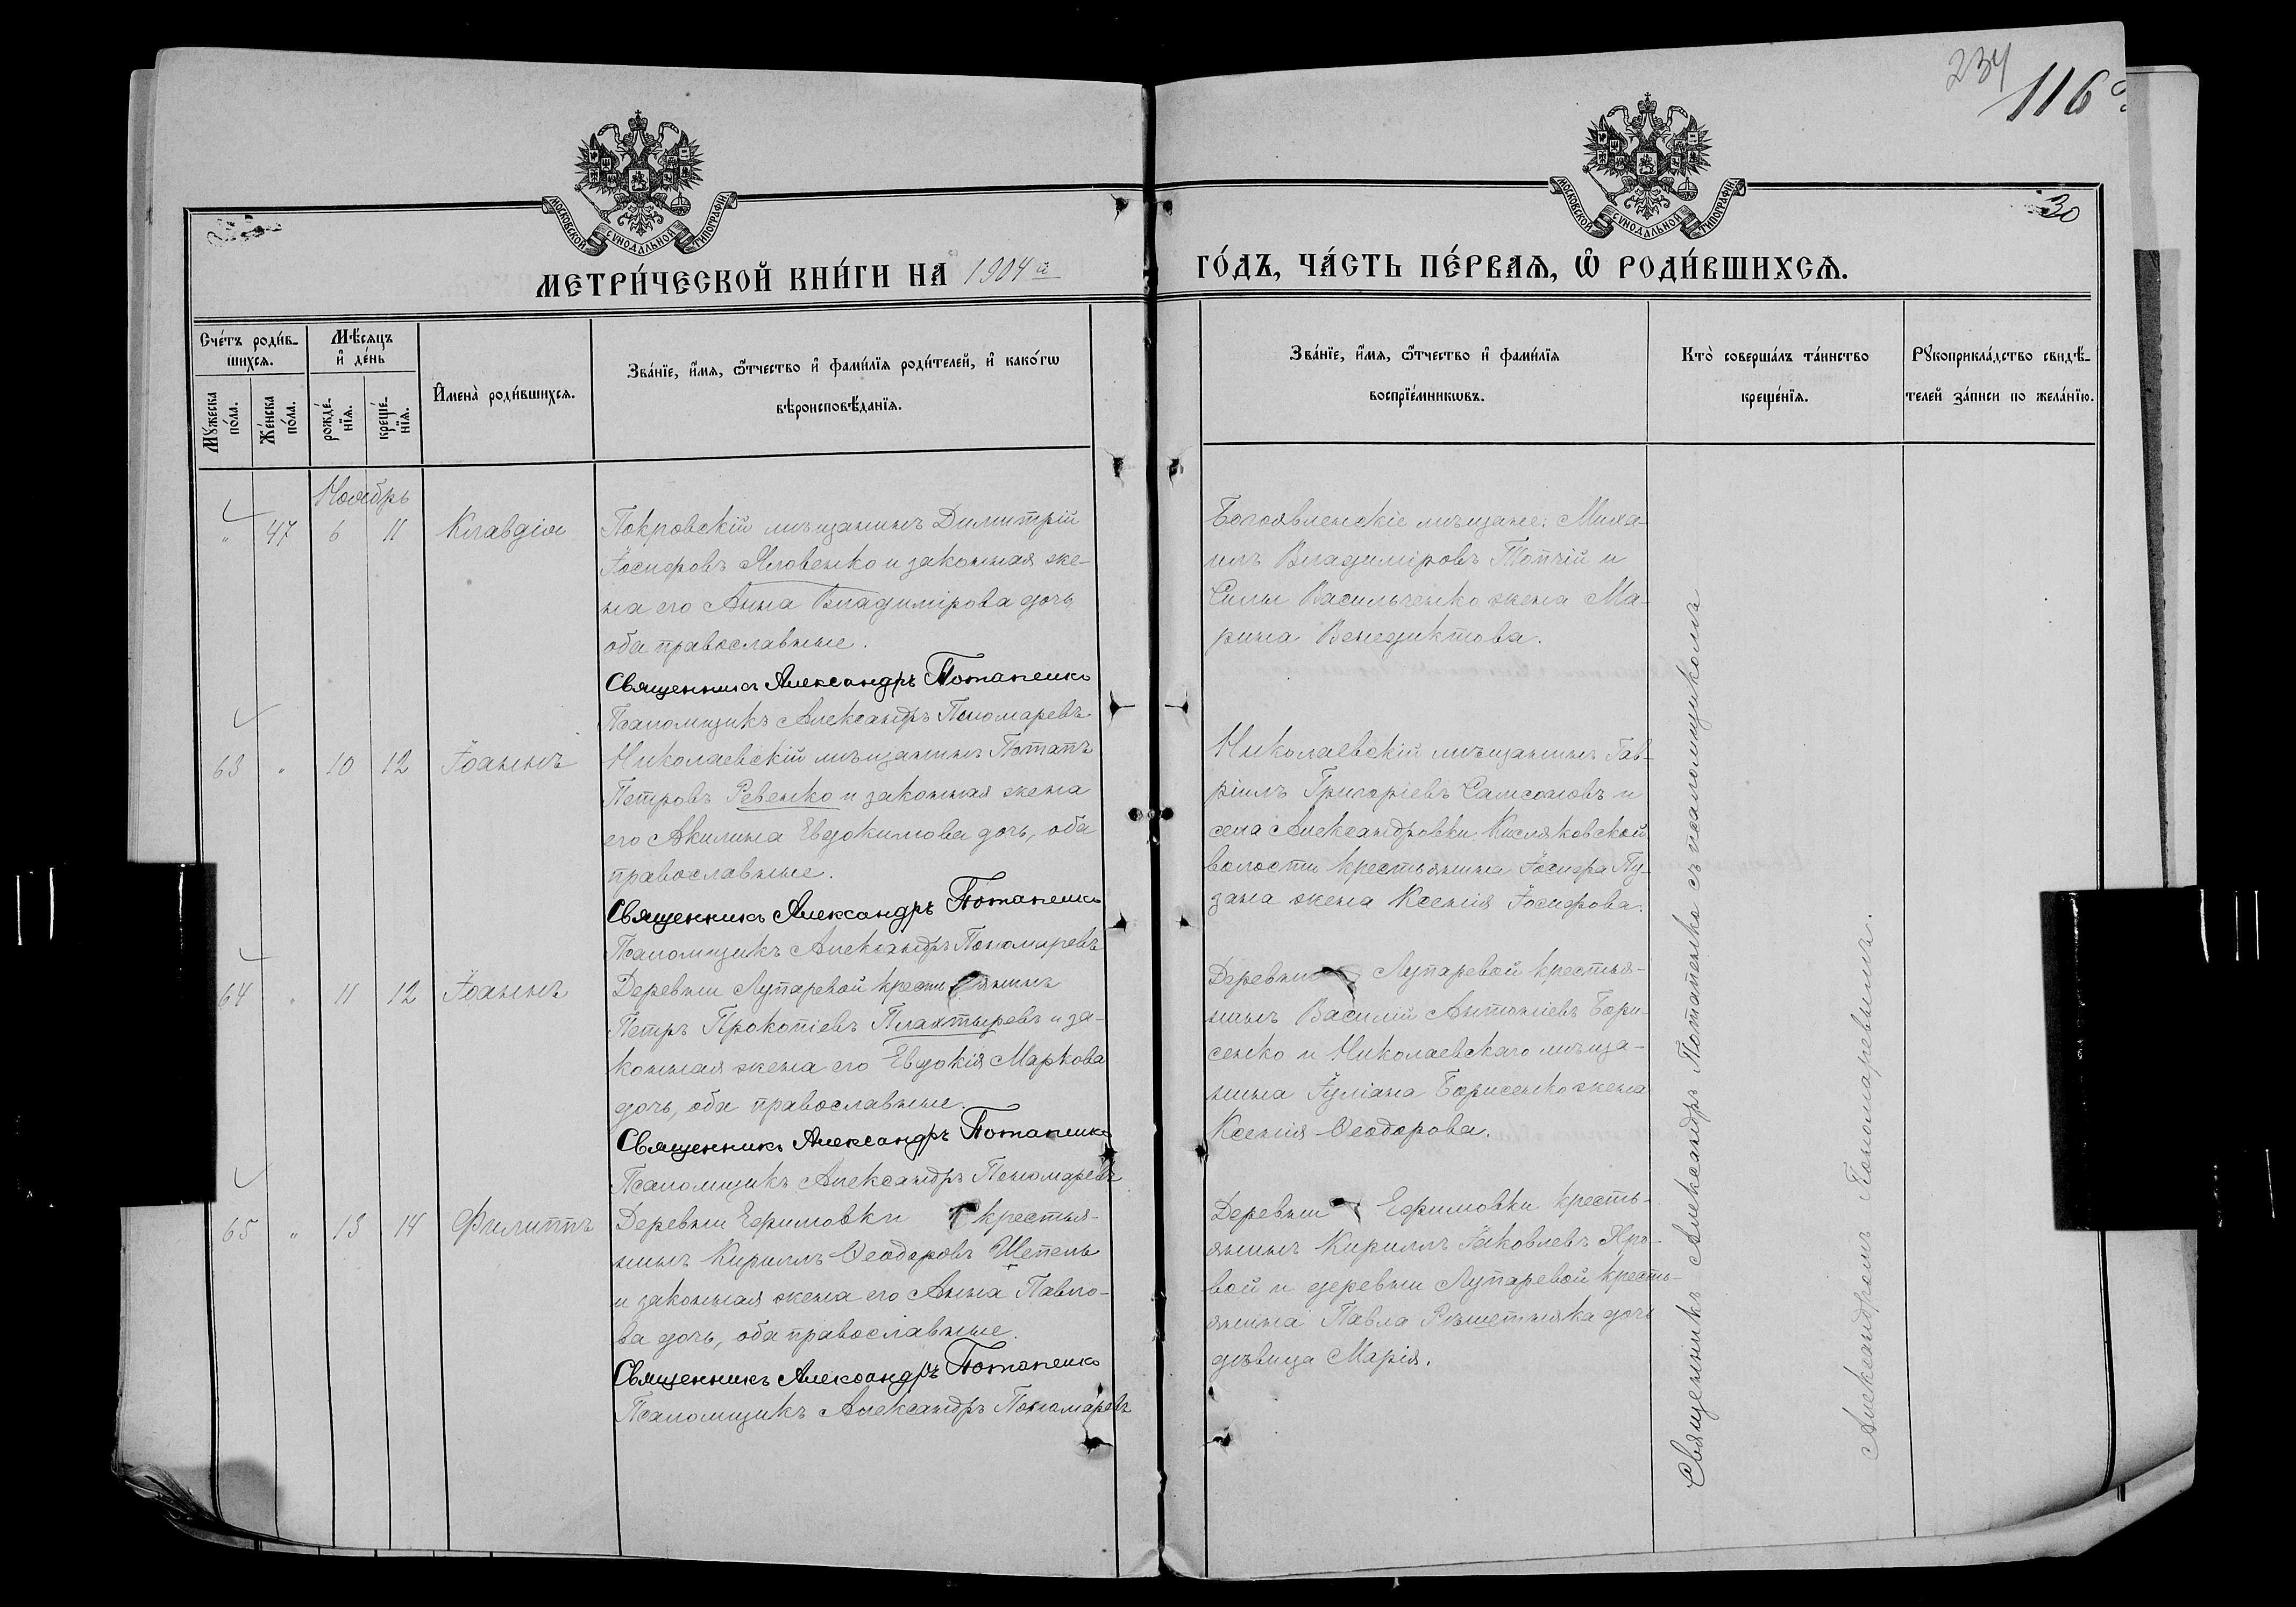 234
116
30
МОСКОВСКОЙ СѴНОДАЛЬНОЙ ТИПОГРАФІИ
МОСКОВСКОЙ СѴНОДАЛЬНОЙ ТИПОГРАФІИ
МЕТРИ́ЧЕСКОЙ КНИ́ГИ НА 1904й
ГО́ДЪ, ЧА́СТЬ ПЕ́РВАЯ, Ѡ҆ РОДИ́ВШИХСЯ.
Сче́тъ роди́в-
шихся.
Мꙋ́жеска по́ла.
Же́нска по́ла.
Мѣ́сяцъ и҆ де́нь
рожде́-нїя.
креще́-нїя.
И҆мена̀ роди́вшихся.
Зва́нїе, и҆́мя, ѻ҆́тчество и҆ фами́лїя роди́телей, и҆ како́гѡ
вѣроисповѣ́данїя.
Зва́нїе, и҆́мя, ѻ҆́тчество и҆ фами́лїя
воспрїе́мникѡвъ.
Кто̀ соверша́лъ та́инство
креще́нїя.
Рꙋкоприкла́дство свидѣ́-
телей за́писи по жела́нїю.
Ноябрь
" 47 6 11 Клавдія
Покровскій мѣщанинъ Димитрій
Іосифовъ Яловенко и законная же-
на его Анна Владимірова дочь,
оба православные.
Священникъ Александръ Потапенко
Псаломщикъ Александръ Пономаревъ
Богоявленскіе мѣщане: Миха-
илъ Владиміровъ Топчій и
Силы Васильченко жена Ма-
рина Венедиктова.
63 " 10 12 Іоаннъ
Николаевскій мѣщанинъ Потапъ
Петровъ Ревенко и законная жена
его Акилина Евдокимова дочь, оба
православные.
Священникъ Александръ Потапенко
Псаломщикъ Александръ Пономаревъ
Николаевскій мѣщанинъ Гав-
ріилъ Григоріевъ Самсоновъ и
села Александровки Кисляковской
волости крестьянина Іосифа Пу-
зана жена Ксенія Іосифова.
64 " 11 12 Іоаннъ
Деревни Лупаревой крестьянинъ
Петръ Прокопіевъ Плахтыревъ и за-
конная жена его Евдокія Маркова
дочь, оба православные.
Священникъ Александръ Потапенко
Псаломщикъ Александръ Пономаревъ
Деревни Лупаревой крестья-
нинъ Василій Антоніевъ Бори-
сенко и Николаевскаго мѣща-
нина Іуліана Борисенко жена
Ксенія Ѳеодорова.
65 " 13 14 Филиппъ
Деревни Ефимовки крестья-
нинъ Кириллъ Ѳеодоровъ Шепель
и законная жена его Анна Павло-
ва дочь, оба православные.
Священникъ Александръ Потапенко
Псаломщикъ Александръ Пономаревъ
Деревни Ефимовки кресть-
янинъ Кириллъ Іаковлевъ Яро-
вой и деревни Лупаревой кресть-
янина Павла Рѣшетняка дочь
дѣвица Марія.
Священникъ Александръ Потапенко съ псаломщикомъ
Александромъ Пономаревымъ.